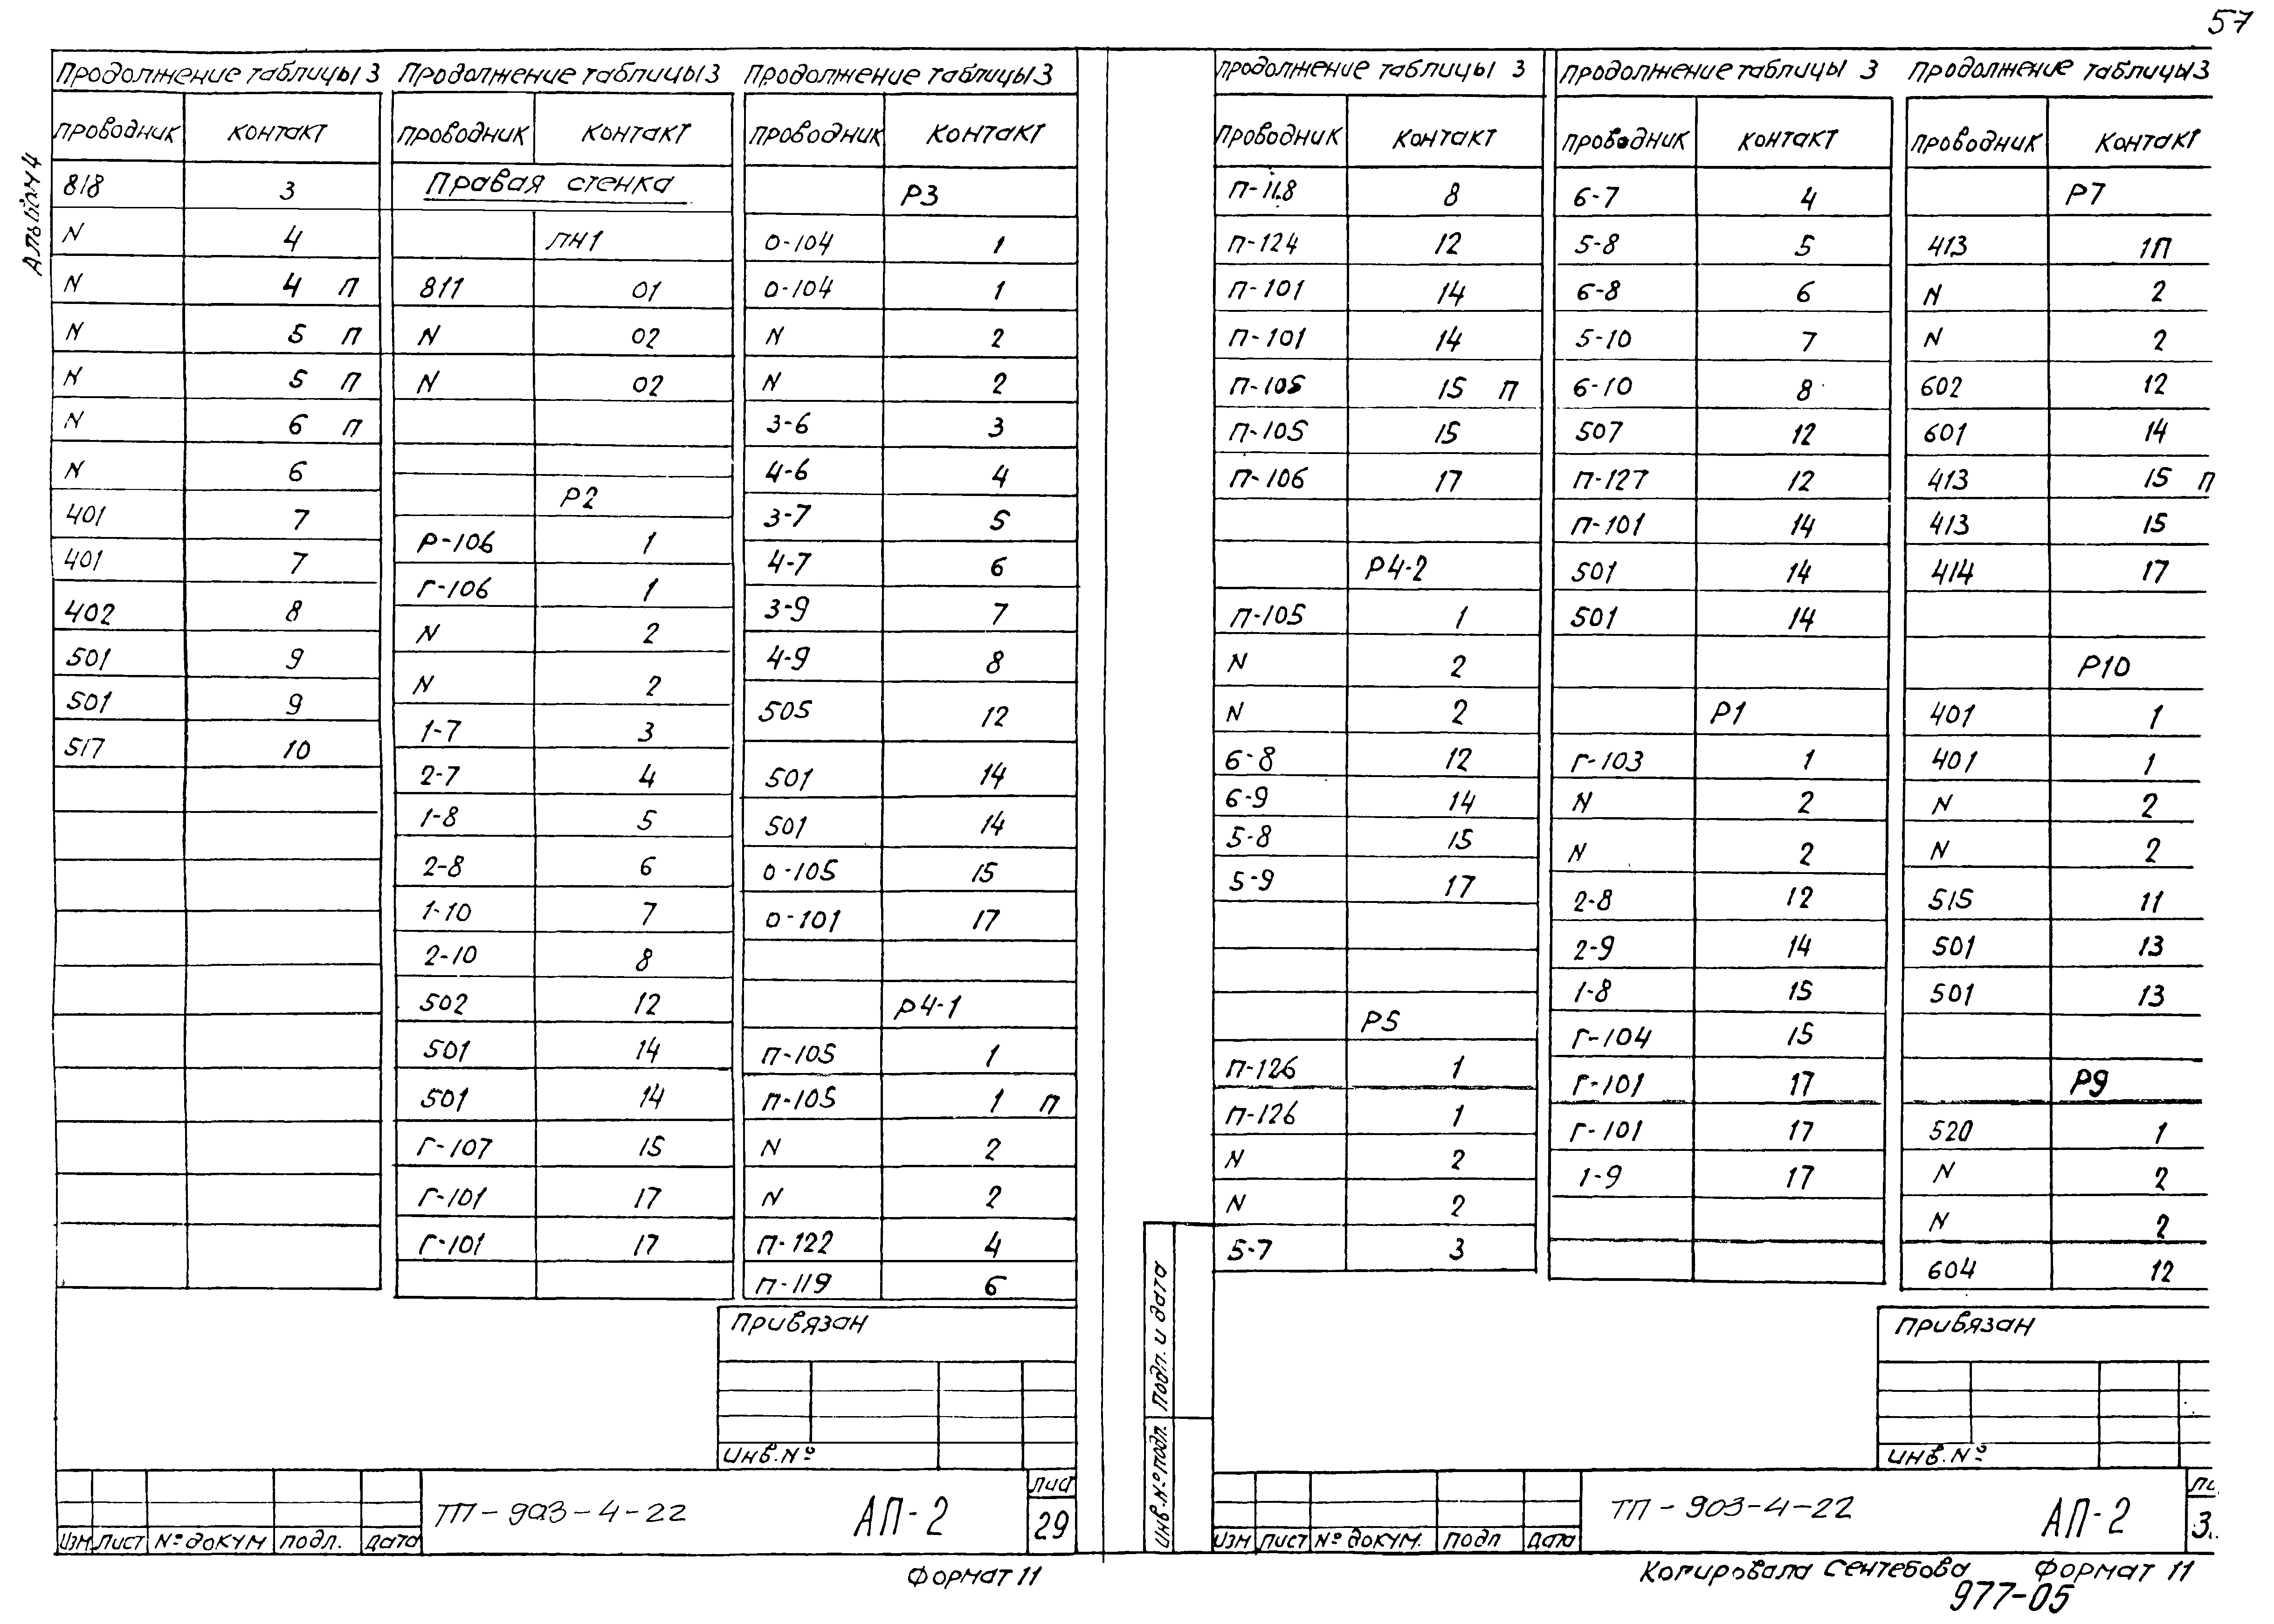 57
Альбом 4
Продолжение таблицы 3
проводник контакт
818 3
N 4
N 4 П
N 5 П
N 5 П
N 6 П
N 6
401 7
401 7
402 8
501 9
501 9
517 10
Продолжение таблицы 3
проводник контакт
Правая стенка
ПН1
811 01
N 02
N 02
Р2
Р-106 1
Г-106 1
N 2
N 2
1-7 3
2-7 4
1-8 5
2-8 6
1-10 7
2-10 8
502 12
501 14
501 14
Г-107 15
Г-101 17
Г-101 17
Продолжение таблицы 3
проводник контакт
Р3
0-104 1
0-104 1
N 2
N 2
3-6 3
4-6 4
3-7 5
4-7 6
3-9 7
4-9 8
505 12
501 14
501 14
0-105 15
0-101 17
Р4-1
П-105 1
П-105 1 П
N 2
N 2
П-122 4
П-119 6
Привязан
Инв. №
Изм Лист № докум подл. дата
ТП-903-4-22 АП-2
Лист
29
Формат 11
Продолжение таблицы 3
проводник контакт
П-118 8
П-124 12
П-101 14
П-101 14
П-105 15 П
П-105 15
П-106 17
Р4-2
П-105 1
N 2
N 2
6-8 12
6-9 14
5-8 15
5-9 17
Р5
П-126 1
П-126 1
N 2
N 2
5-7 3
Продолжение таблицы 3
проводник контакт
6-7 4
5-8 5
6-8 6
5-10 7
6-10 8
507 12
П-127 12
П-101 14
501 14
501 14
Р1
Г-103 1
N 2
N 2
2-8 12
2-9 14
1-8 15
Г-104 15
Г-101 17
Г-101 17
1-9 17
Продолжение таблицы 3
проводник контакт
Р7
413 1П
N 2
N 2
602 12
601 14
413 15 П
413 15
414 17
Р10
401 1
401 1
N 2
N 2
515 11
501 13
501 13
Р9
520 1
N 2
N 2
604 12
Привязан
Инв. №
Инв. № подл. Подп. и дата
Изм Лист № докум. подп дата
ТП-903-4-22 АП-2
3
Копировала Сентебова Формат 11
977-05